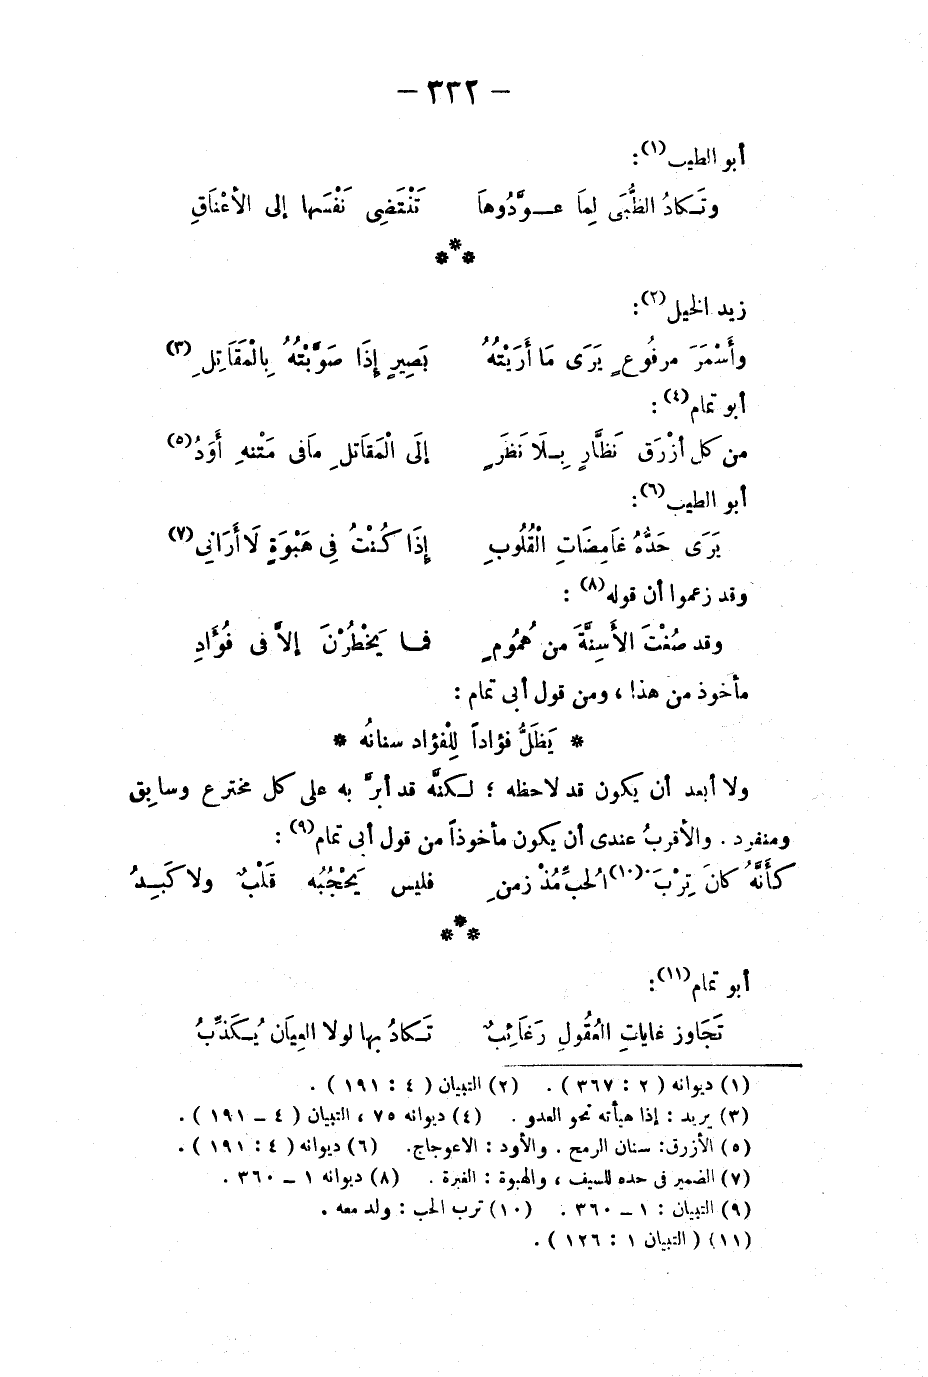 — ٣٣٢ —
أبو الطيب(١):
وتَـكادُ الظُّبَى لِمَا عـــوَّدُوهَا تَنْتَضِى نَفْسَها إلى الأعْنَاقِ
***
زيد الخيل(٢):
وأَسْمَرَ مرفُوعٍ يَرَى مَا أَرَيْتُهُ بَصِيرٍ إِذَا صَوَّبْتُهُ بِالْمَقَاتِلِ (٣)
أبو تمام(٤) :
من كل أزْرَق نَظَّارٍ بِـلَا نَظَرٍ إلَى الْمَقَاتلِ مافى مَتْنهِ أَوَدُ(٥)
أبو الطيب(٦):
يَرَى حَدُّهُ غَامِضَاتِ الْقُلُوبِ إِذَا كُنْتُ فِي هَبْوَةٍ لَا أَرَانِي(٧)
وقد زعموا أن قوله(٨) :
وقد صُغْتَ الأَسِنَّةَ من هُمُومٍ فمـا يَخْطُرْنَ إلاَّ فى فُؤَادِ
مأخوذ من هذا ، ومن قول أبى تمام :
* يَظَلُّ فؤاداً لِلْفؤاد سنانُه *
ولا أبعد أن يكون قد لاحظه ؛ لـكنَّه قد أبرَّ به على كل مخترع وسابِق
ومنفرد . والأقربُ عندى أن يكون مأخوذاً من قول أبى تمام(٩) :
كأَنَّهُ كانَ تِرْبَ(١٠) الحبِّ مُذْ زمنٍ فليس يَحْجُبُه قَلْبٌ ولا كَبِـدُ
***
أبو تمام(١١):
تَجَاوز غاياتِ العُقُولِ رَغَائبٌ تَـكادُ بها لولا العِيَان يُـكَذِّبُ
(١) ديوانه ( ٢ : ٣٦٧ ) . (٢) التبيان ( ٤ : ١٩١ ) .
(٣) يريد : إذا هيأته نحو العدو . (٤) ديوانه ٧٥ ، التبيان ( ٤ ــ ١٩١ ) .
(٥) الأزرق: سنان الرمح . والأود : الاعوجاج. (٦) ديوانه ( ٤ : ١٩١ ) .
(٧) الضمير فى حده للسيف ، والهبوة : الغبرة . (٨) ديوانه ١ ــ ٣٦٠ .
(٩) التبيان : ١ ــ ٣٦٠ . (١٠) ترب الحب : ولد معه .
(١١) ( التبيان ١ : ١٢٦ ) .